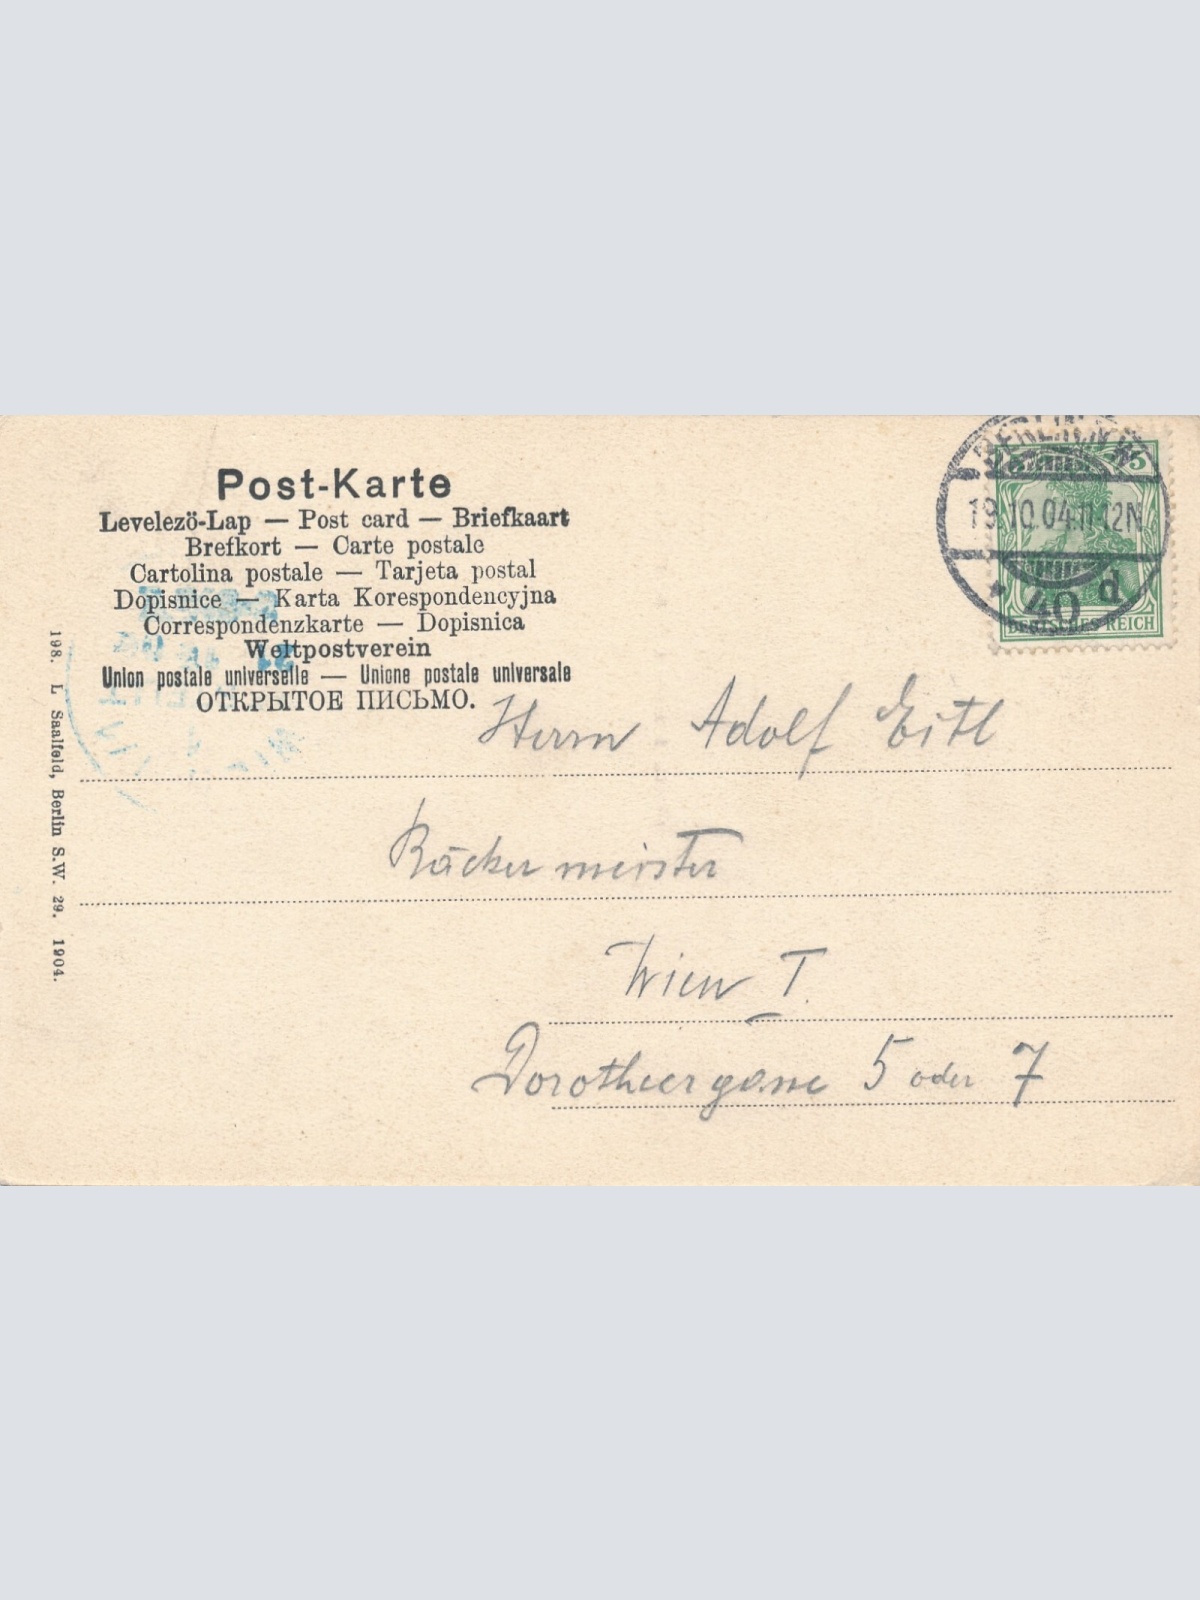 Post-Karte
Levelező-Lap — Post card — Briefkaart
Brefkort — Carte postale
Cartolina postale — Tarjeta postal
Dopisnice — Karta Korespondencyjna
Correspondenzkarte — Dopisnica
Weltpostverein
Union postale universelle — Unione postale universale
ОТКРЫТОЕ ПИСЬМО.
BERLIN
19.10.04.11-12N
* 40 d
5
DEUTSCHES REICH
Herrn Adolf Eitl
Bäckermeister
Wien I.
Dorotheergasse 5 oder 7
198. L Saalfeld, Berlin S.W. 29. 1904.